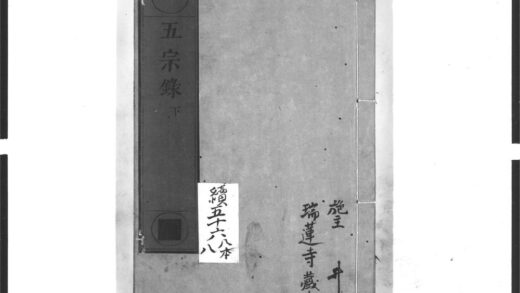 五宗錄 下
續五十六
八本
八
施主
瑞蓮寺藏